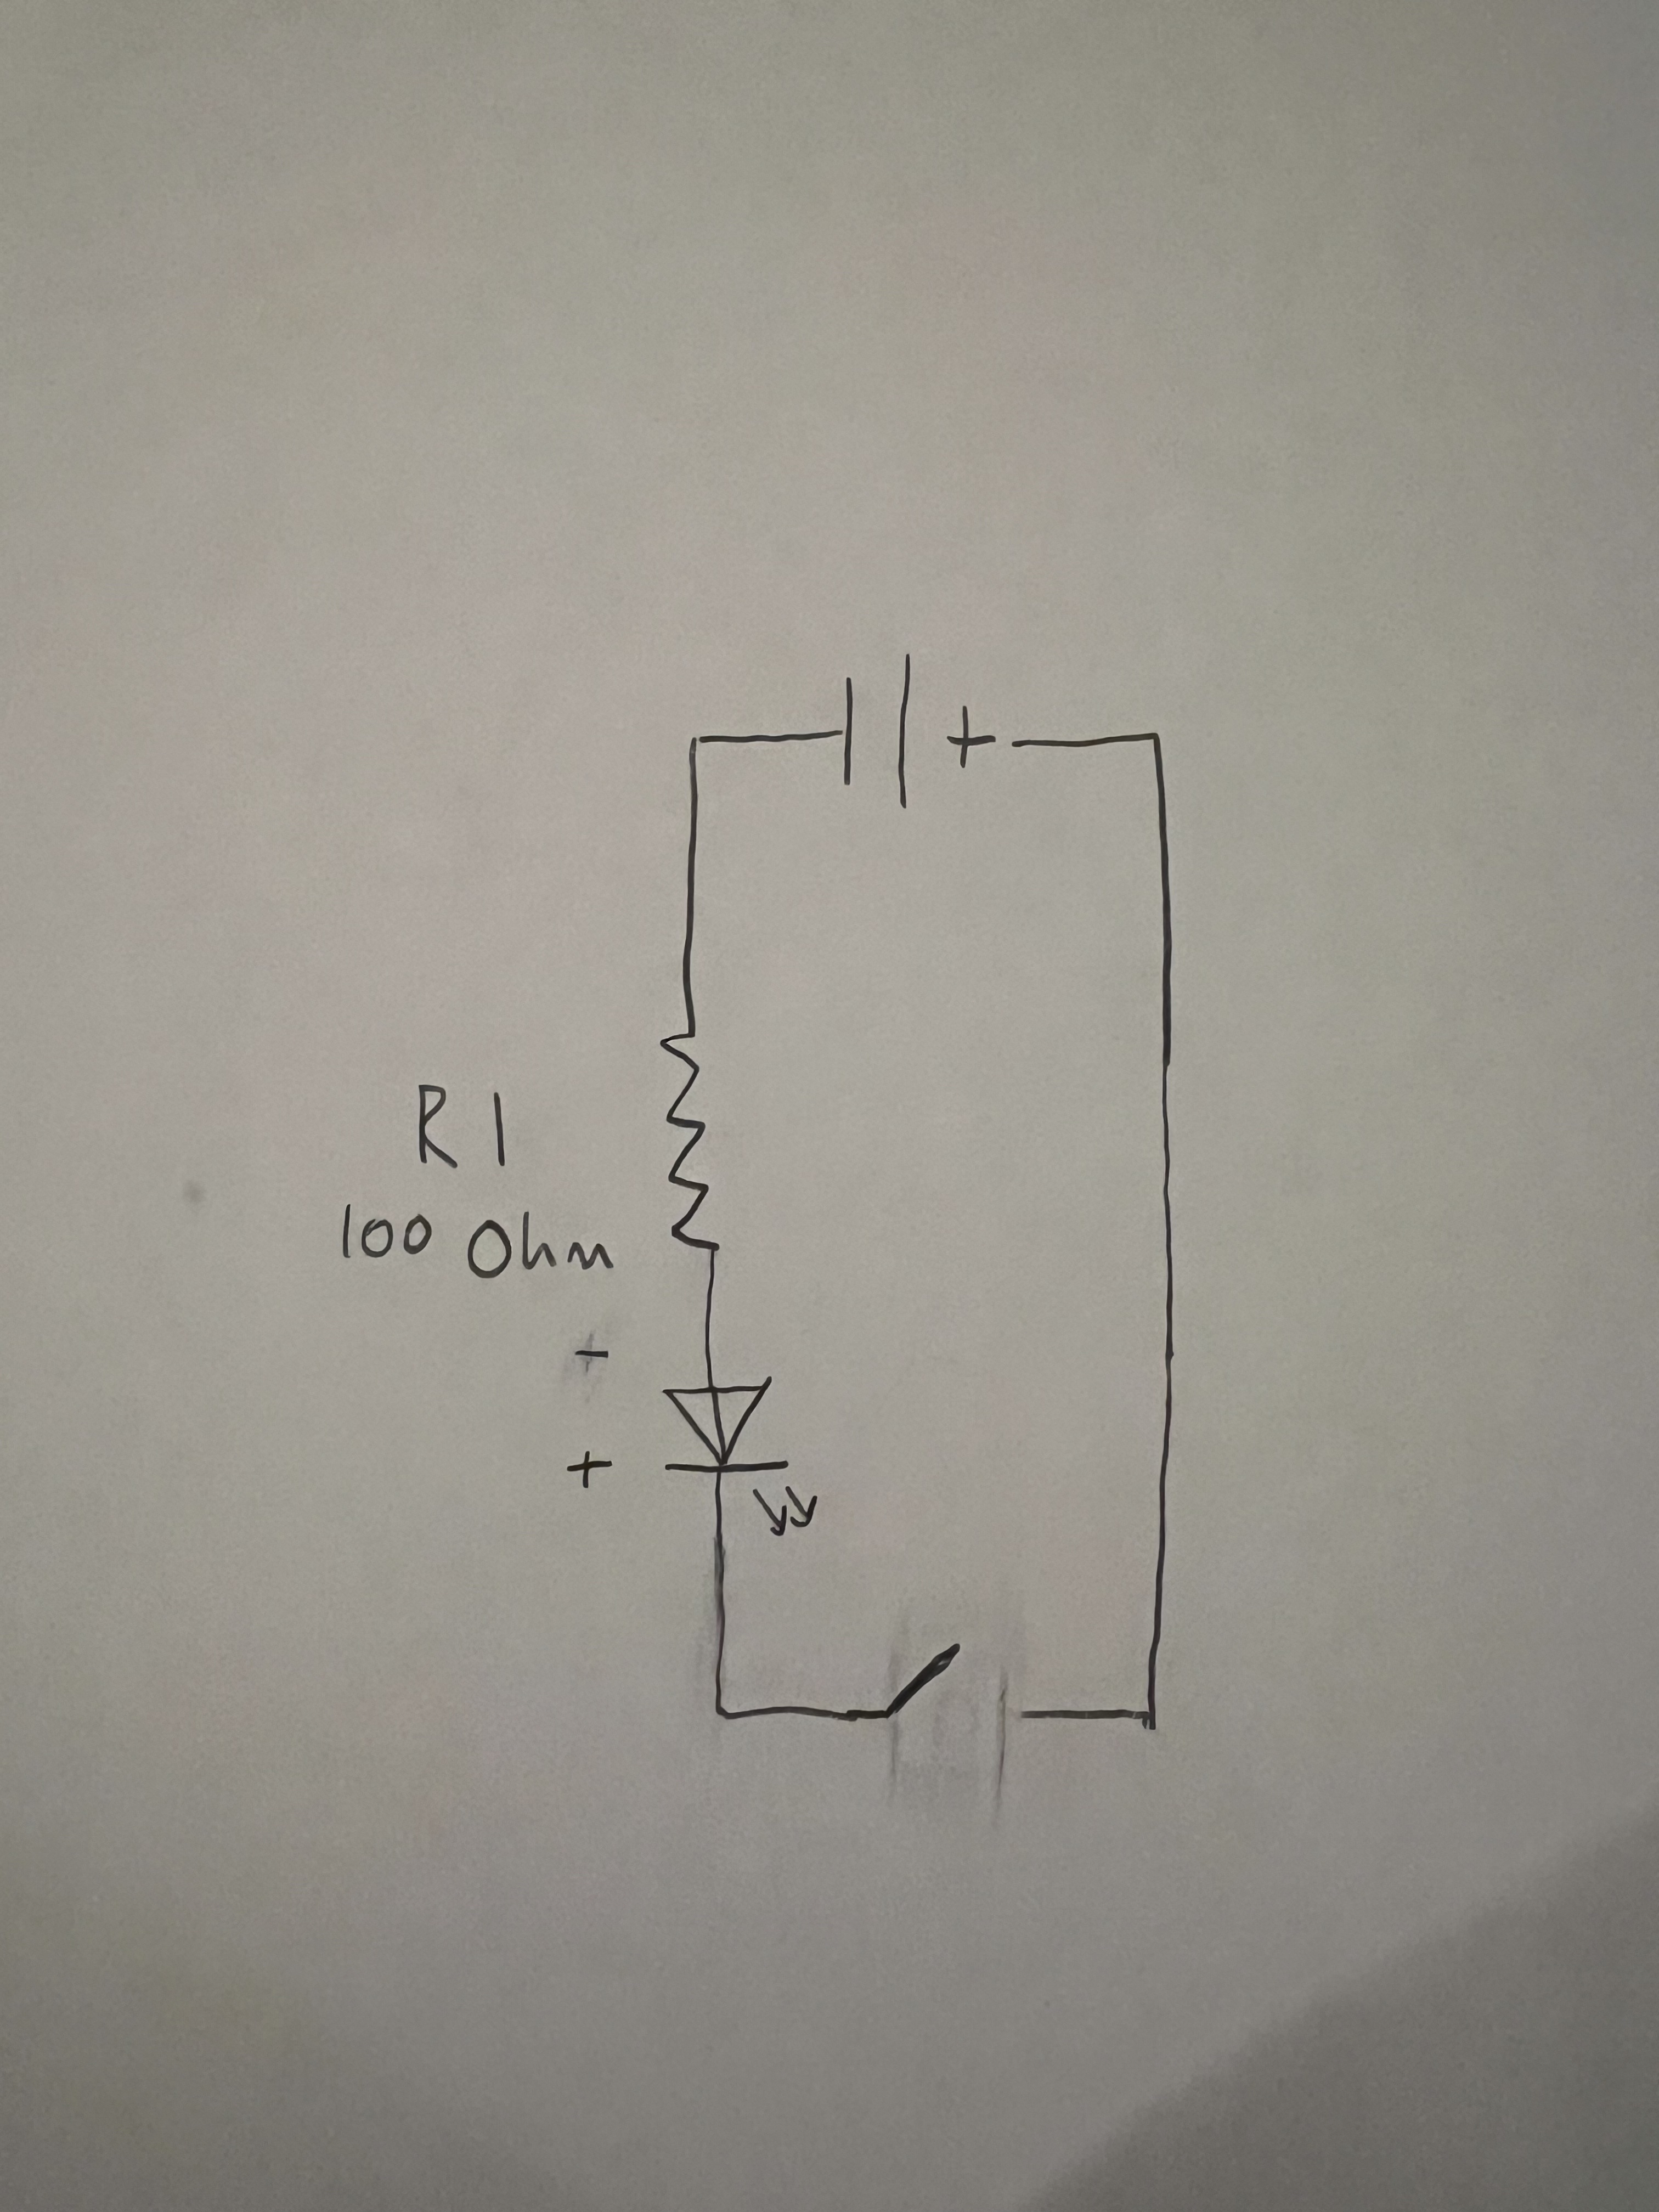 +
R1
100 Ohm
-
+